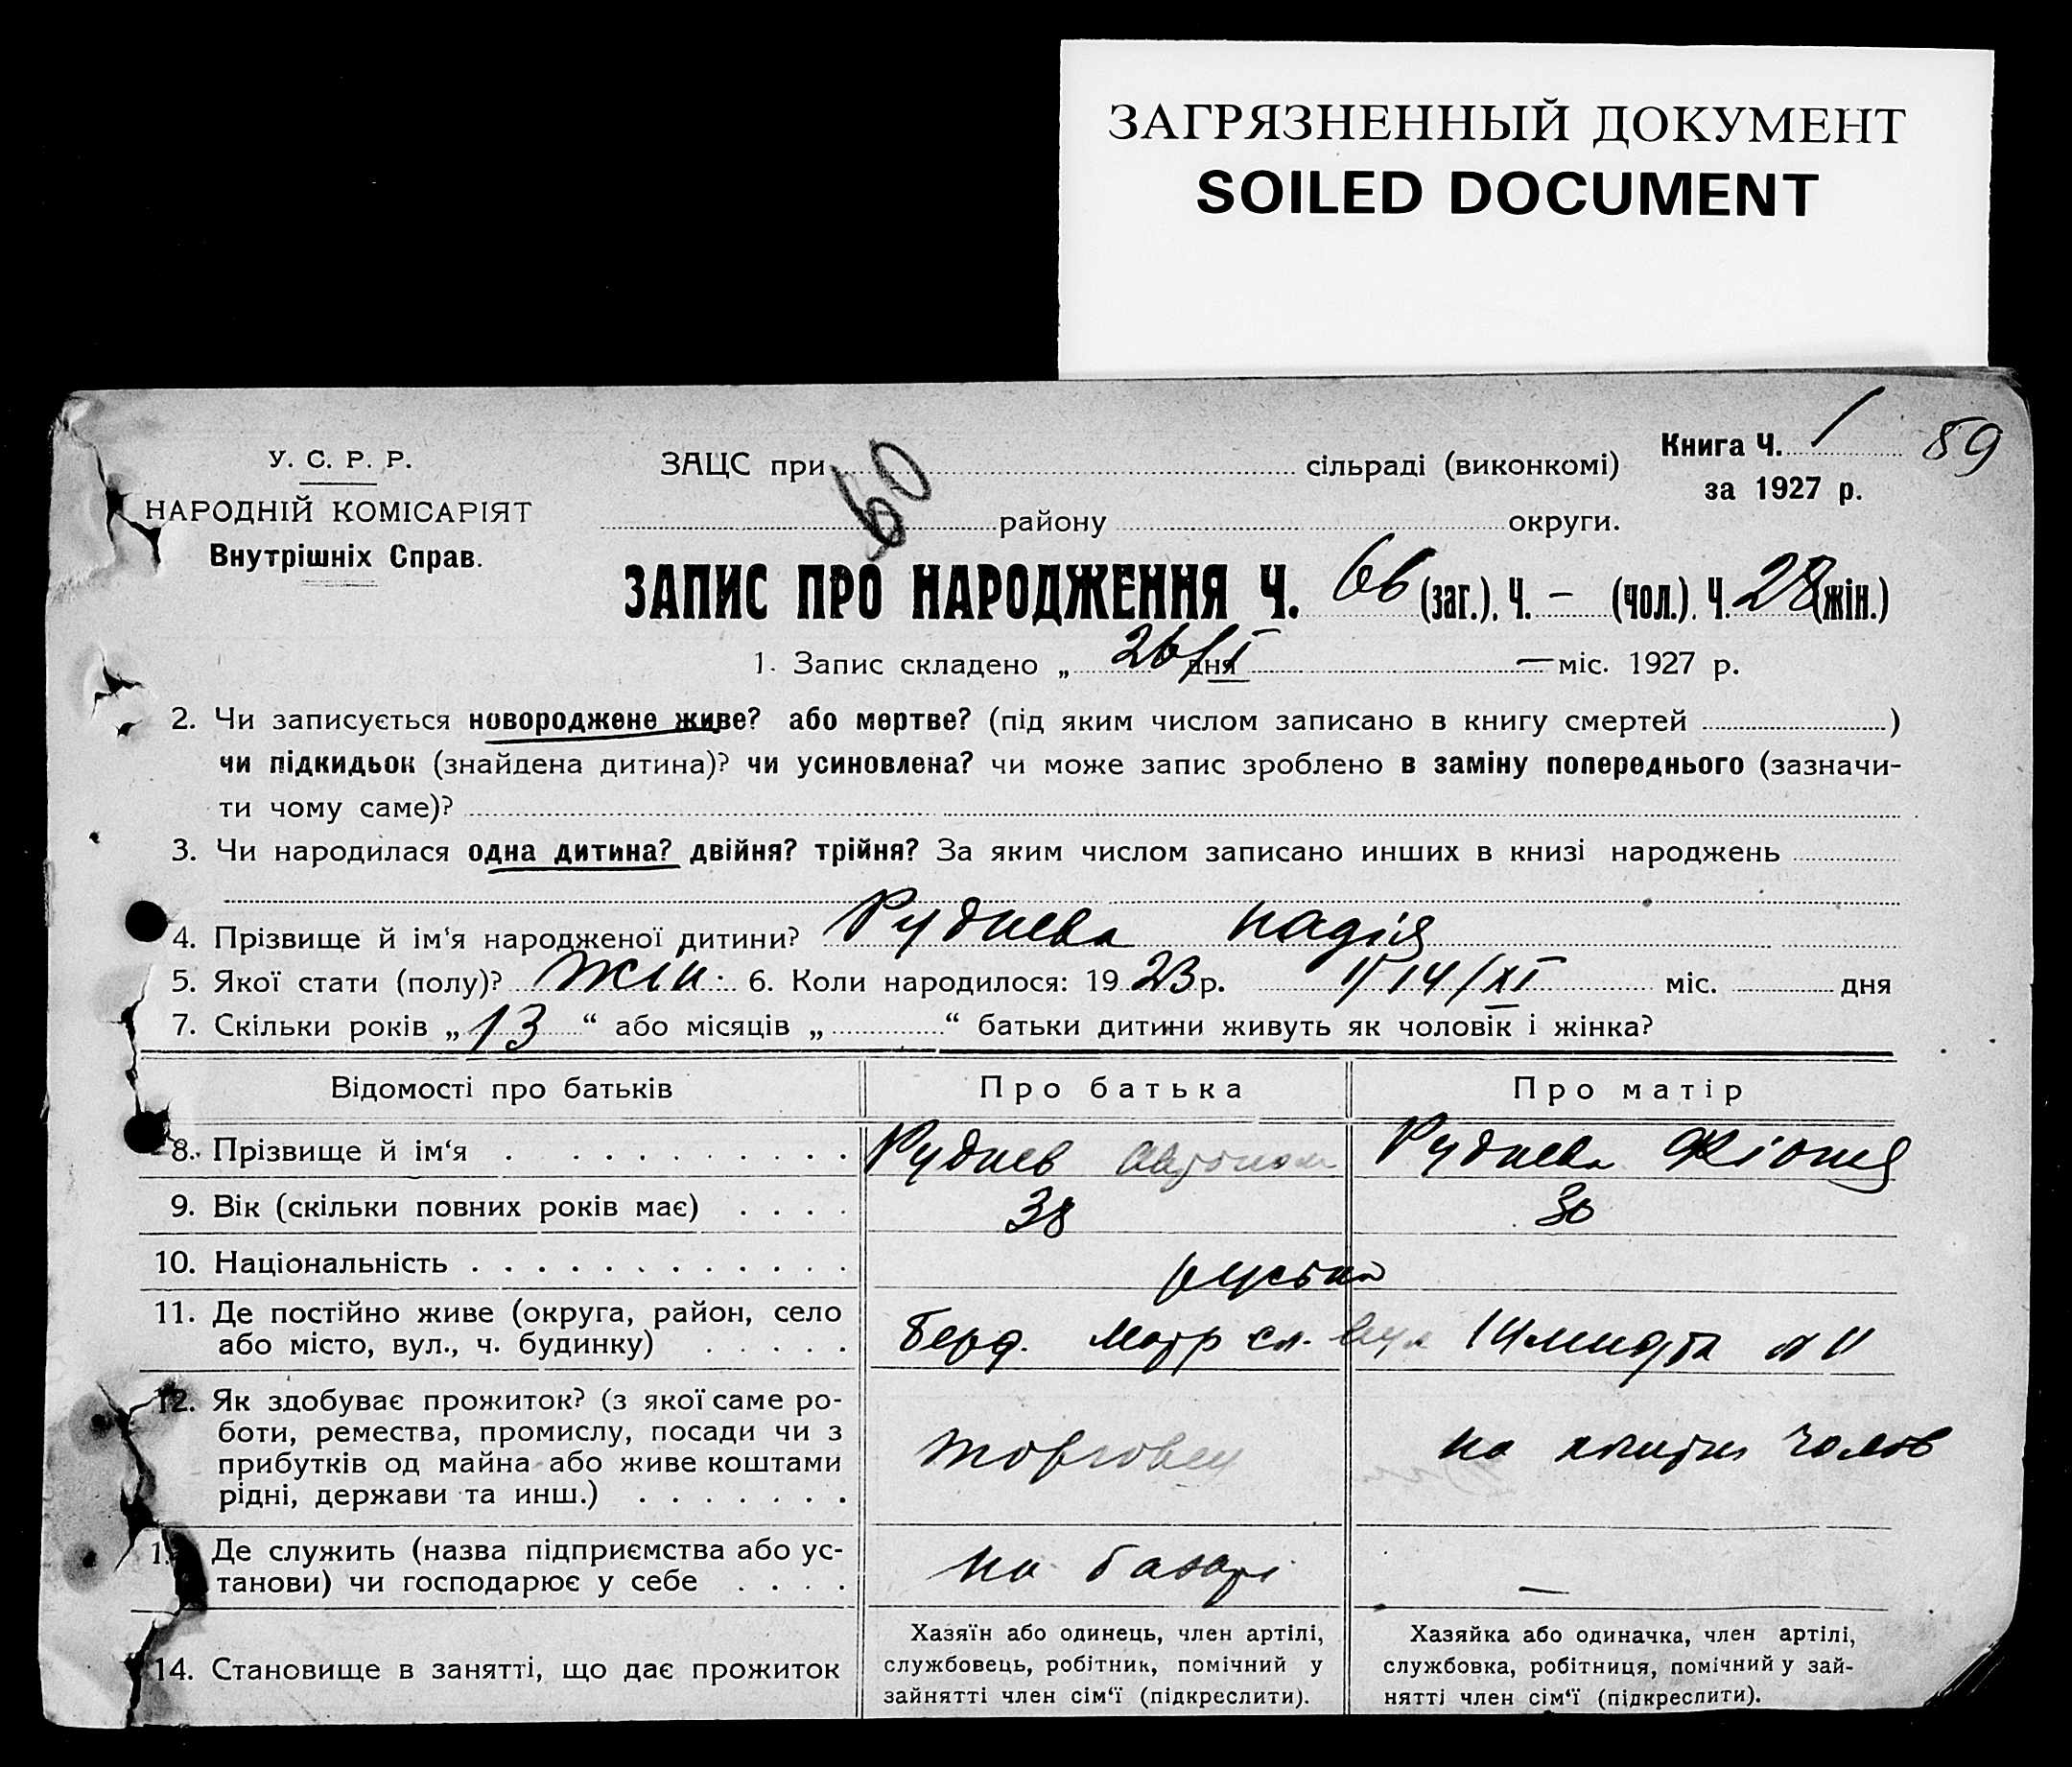 ЗАГРЯЗНЕННЫЙ ДОКУМЕНТ
SOILED DOCUMENT
Книга Ч. 1 59
за 1927 р.
У. С. Р. Р.
НАРОДНІЙ КОМІСАРІЯТ
Внутрішніх Справ.
60
ЗАЦС при сільраді (виконкомі)
району округи.
ЗАПИС ПРО НАРОДЖЕННЯ Ч. 66 (заг.), Ч. – (чол.), Ч. 28 (жін.)
1. Запис складено „ 26/I дня — міс. 1927 р.
2. Чи записується новороджене живе? або мертве? (під яким числом записано в книгу смертей )
чи підкидьок (знайдена дитина)? чи усиновлена? чи може запис зроблено в заміну попереднього (зазначи-
ти чому саме)?
3. Чи народилася одна дитина? двійня? трійня? За яким числом записано инших в книзі народжень
4. Прізвище й ім'я народженої дитини? Руднева Надія
5. Якої стати (полу)? жін. 6. Коли народилося: 1923 р. 14/XI міс. дня
7. Скільки років „ 13 “ або місяців „ “ батьки дитини живуть як чоловік і жінка?
Відомості про батьків Про батька Про матір
8. Прізвище й ім'я Руднев Автоном Руднева
9. Вік (скільки повних років має) 38 30
10. Національність
11. Де постійно живе (округа, район, село
або місто, вул., ч. будинку) Берд. Матр сл. вул Шмидта
12. Як здобуває прожиток? (з якої саме ро-
боти, ремества, промислу, посади чи з
прибутків од майна або живе коштами
рідні, держави та инш.) торговец на чолов
Де служить (назва підприємства або ус-
танови) чи господарює у себе на базарі —
14. Становище в занятті, що дає прожиток
Хазяїн або одинець, член артілі,
службовець, робітник, помічний у
зайнятті член сім'ї (підкреслити).
Хазяйка або одиначка, член артілі,
службовка, робітниця, помічний у зай-
нятті член сім'ї (підкреслити).